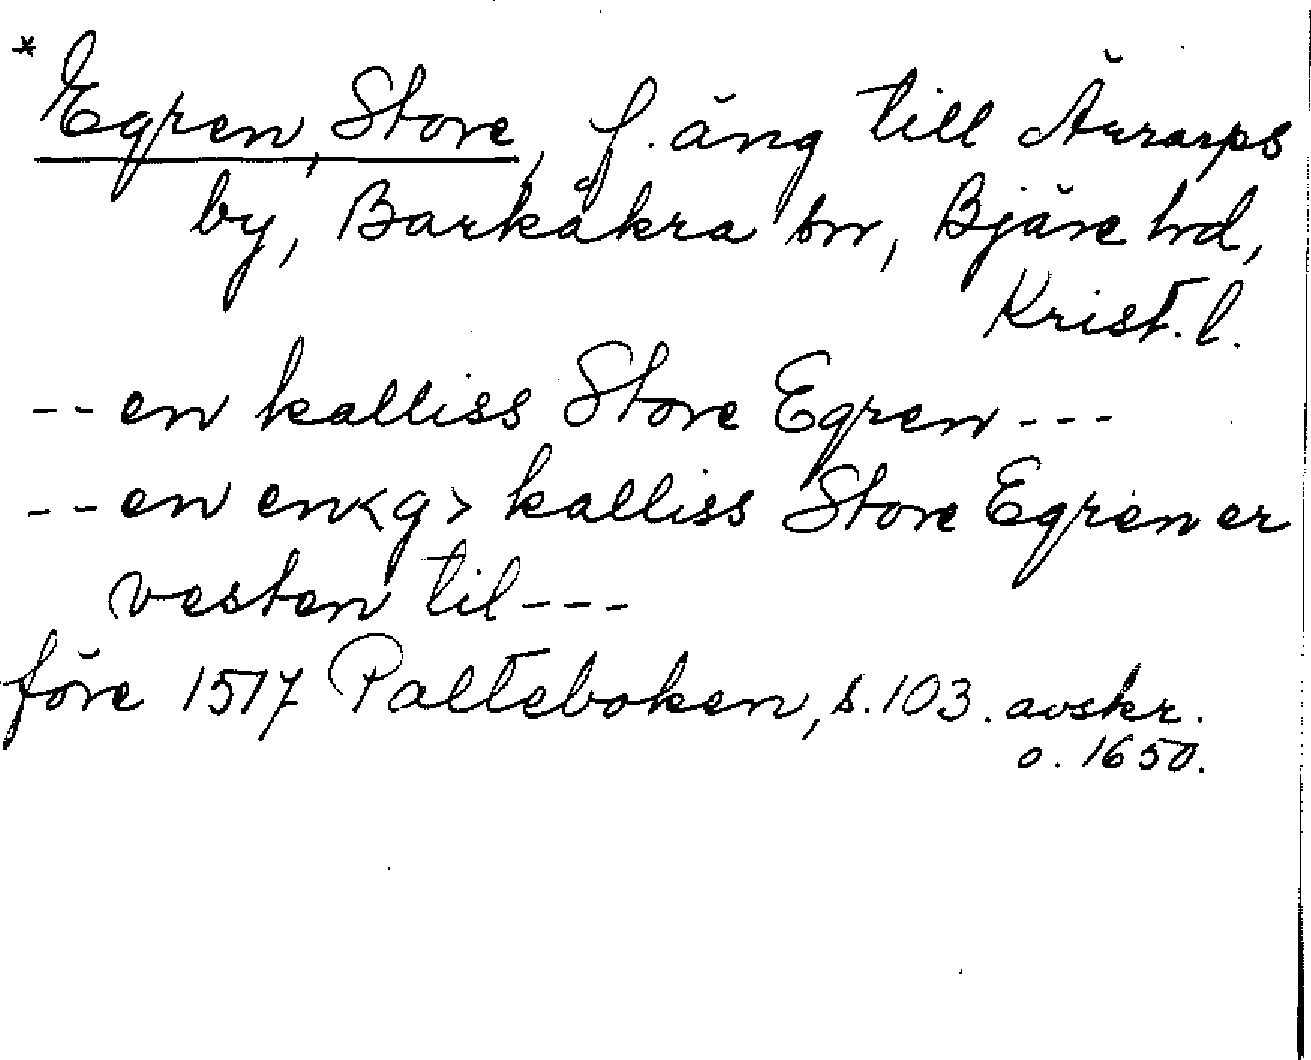 * Egren, Store, f. äng till Ärrarps
by, Barkåkra sn, Bjäre hd,
Krist. l.
-- en kalliss Store Egren ---
-- en en<g> kalliss Store Egren er
vesten til ---
före 1517 Palteboken, s. 103. avskr.
o. 1650.